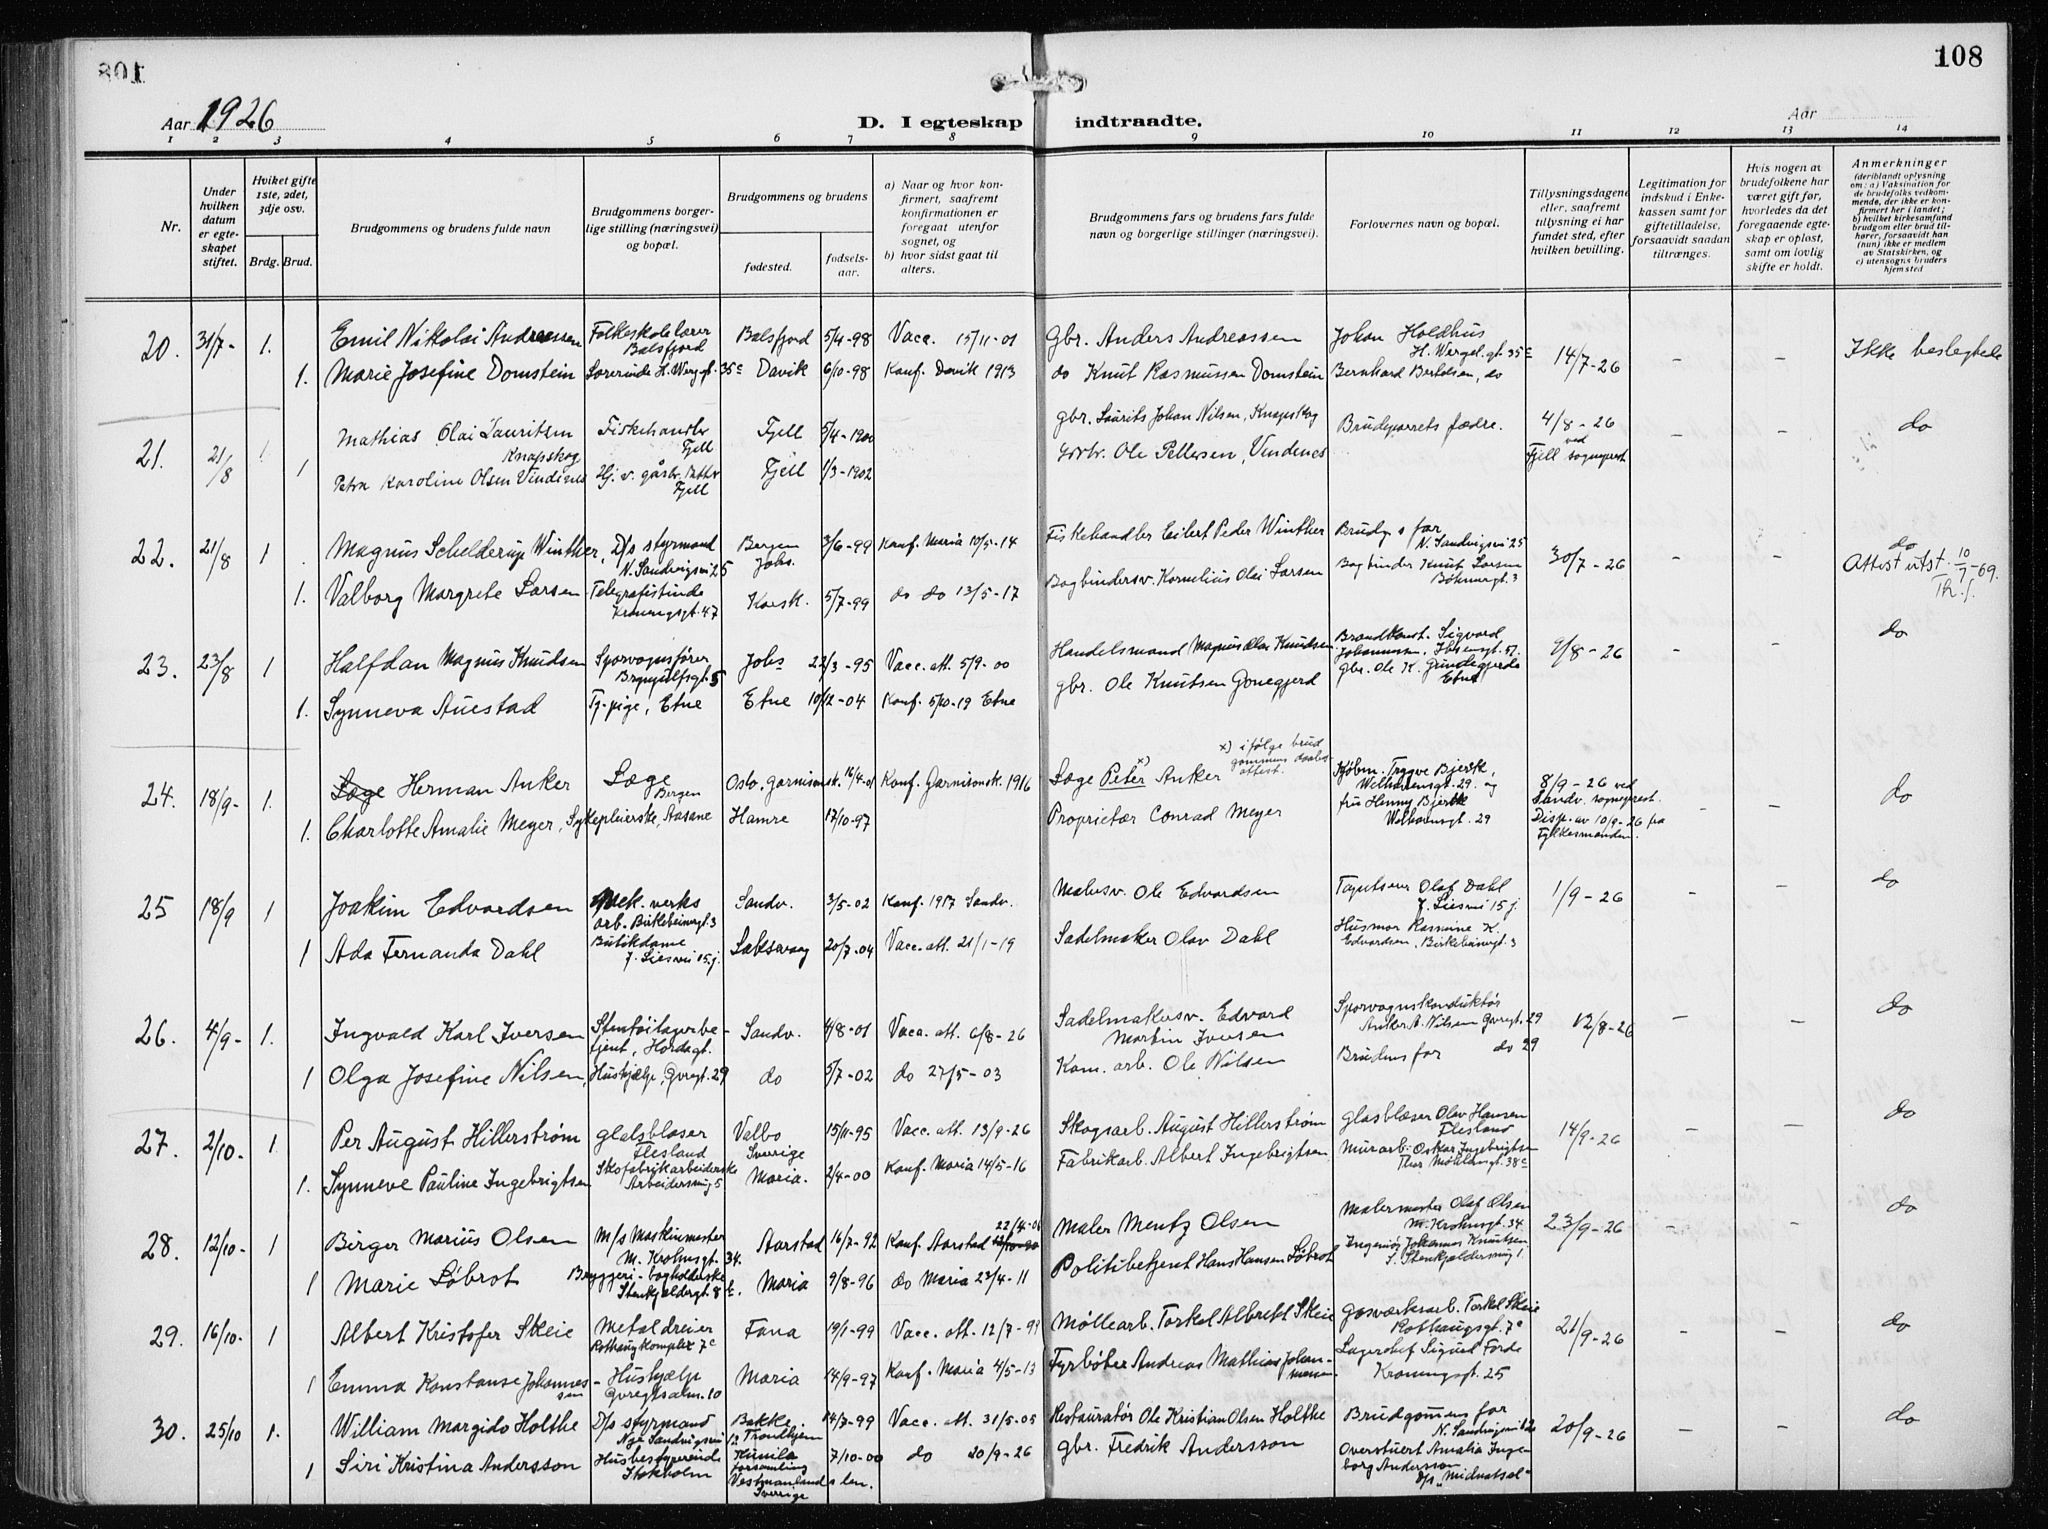 108
Aar 1926
D. I egteskap indtraadte.
Aar
1 2 3 4 5 6 7 8 9 10 11 12 13 14
Nr.
Under hvilken datum er egteskapet stiftet.
Hviket gifte 1ste, 2det, 3dje osv.
Brdg. Brud.
Brudgommens og brudens fulde navn
Brudgommens borgerlige stilling (næringsvei) og bopæl.
Brudgommens og brudens
fødested.
fødselsaar.
a) Naar og hvor konfirmert, saafremt konfirmationen er foregaat utenfor sognet, og
b) hvor sidst gaat til alters.
Brudgommens fars og brudens fars fulde navn og borgerlige stillinger (næringsvei).
Forlovernes navn og bopæl.
Tillysningsdagene eller, saafremt tillysning ei har fundet sted, efter hvilken bevilling.
Legitimation for indskud i Enkekassen samt for giftetilladelse, forsaavidt saadan tiltrænges.
Hvis nogen av brudefolkene har været gift før, hvorledes da det foregaaende egteskap er opløst, samt om lovlig skifte er holdt.
Anmerkninger
(deriblandt oplysning om: a) Vaksination for de brudefolks vedkommende, der ikke er konfirmert her i landet; b) hvilket kirkesamfund brudgom eller brud tilhører, forsaavidt han (hun) ikke er medlem av Statskirken, og c) utensogns bruders hjemsted
20. 31/7- 1. Emil Nikolai Andreassen Folkeskolelærer Balsfjord Balsfjord 5/4-98 Vacc. 15/11-01 Gbr. Anders Andreassen Johan Holdhus H. Wergel. gt. 35c 14/7-26 - - Ikke beslegtede
1. Marie Josefine Domstein Lærerinde H. Werg. gt. 35c Davik 6/10-98 Konf. Davik 1913 do Knut Rasmussen Domstein Bernhard Bertelsen, do
21. 21/8 1 Mathias Olai Lauritsen Knapskog Fiskehandler Fjell Fjell 5/4-1900 gbr. Laurits Johan Nilsen, Knapskog Brudeparrets fædre. 4/8-26 ved Fjell sogneprest - - do
1 Petra Karoline Olsen Vindenes Hj. v. gårdbr. Fjell Fjell 1/3-1902 Ole Pettersen, Vindenes
22. 21/8 1 Magnus Schelderup Winther, D/s styrmand N. Sandvigsvei 25 Bergen Johs. 3/6-99 Konf. Maria 10/5-14 Fiskehandler Eilert Peder Winther Brudg s far N. Sandvigsvei 25 30/7-26 - - do Attest utst. 10/7-69. Th. J.
1. Valborg Margrete Larsen Telegrafistinde Kroningsgt. 47 Korsk. 5/7-99 do do 13/5-17 Bogbindersv. Kornelius Olai Larsen Bogbinder Knut Larsen Bøhmergt. 3
23. 23/8 1 Halfdan Magnus Knudsen Sporvognsfører Brynjulfsgt. 5 Johs 22/3-95 Vacc. att. 5/9-00 Handelsmand Magnus Olai Knudsen Brandkonst. Sigvard Johannessen, Ibsensgt. 51. 9/8-26 - - do
1. Synneva Auestad Tj.-pige, Etne Etne 10/12-04 Konf. 5/10-19 Etne gbr. Ole Knutsen Gonegjerd gbr. Ole K. Grindegjerde Etne
24. 18/9- 1. Læge Herman Anker Læge Bergen Oslo. Garnisonsk. 16/4-01 Konf. Garnisonsk. 1916 Læge Peter x) Anker x) ifølge brudgommens daabsattest. Kjøbm. Trygve Bjerck, Welhavensgt. 29. og 8/9-26 ved Sandv. sogneprest. - - do
1. Charlotte Amalie Meyer, Sykepleierske, Aasane Hamre 17/10-97 Proprietær Conrad Meyer fru Henny Bjerck Welhavensgt. 29 Disp. av 10/9-26 fra Fylkesmanden.
25 18/9 1 Joakim Edvardsen Mek. verks arb. Birkebeinergt. 3 Sandv. 3/5-02 Konf. 1917 Sandv. Malersv. Ole Edvardsen Olaf Dahl J. Liesvei 15 j. 1/9-26 - - do
1 Ada Fernanda Dahl Butikdame J. Liesvei 15. j. Laksevaag 20/7-04 Vacc. att. 21/1-19 Sadelmaker Olav Dahl Husmor Rasmine K. Edvardsen, Birkebeinergt. 3
26. 4/9- 1. Ingvald Karl Iversen Stentøilagerbetjent, Hordagt. Sandv. 4/8-01 Vacc. att. 6/8-26 Sadelmakersv. Edvard Martin Iversen Sporvognskonduktør Anker A. Nilsen Øvregt. 29 12/8-26 - - do
1 Olga Josefine Nilsen, Hushjælp, Øvregt. 29 do 5/7-02 do 27/5-03 Kom. arb. Ole Nilsen Brudens far do 29
27. 2/10- 1. Per August Hillerstrøm Glasblæser Flesland Valbo Sverige 15/11-95 Vacc. att. 13/9-26 Skogsarb. August Hillerstrøm Glasblæser Olav Hansen Flesland 14/9-26 - - do
1. Synneve Pauline Ingebrigtsen Skofabrikarbeiderske Arbeidersvei 5 Maria. 2/4-00 Konf. Maria 14/5-16 Fabrikarb. Albert Ingebrigtsen Murarb. Oskar Ingebrigtsen Thor Møhlensgt. 38c
28. 12/10- 1 Birger Marius Olsen M/s Maskinmester M. Krohnsgt. 34. Aarstad 16/7-92 Konf. Aarstad 22/4-06 Maler Mentz Olsen Malermester Olaf Olsen M. Krohnsgt. 34. 23/9-26 - - do
1 Marie Løbrot Bryggeri-bogholderske Stenkjeldergt. 8c. Maria 9/8-96 do Maria 23/4-11 Politibetjent Hans Hansen Løbrot Ingeniør Johannes Knutsen L. Stenkjeldersvei 1.
29. 16/10- 1 Albert Kristofer Skeie Metaldreier Rothaugkomplex 7c Fana 19/1-99 Vacc. att. 12/7-99 Møllearb. Torkel Albrekt Skeie Gasværksarb. Torkel Skeie Rothaugsgt. 7c 21/9-26 - - do
1 Emma Konstanse Johannessen - Hushjælp Øvregtsalm. 10 Maria 14/9-97 Konf. Maria 4/5-13 Fyrbøter Andreas Mathias Johannessen Lagerchef Sigurd Førde Kroningsgt. 25
30. 25/10 1. William Margido Holthe D/s styrmand Nye Sandvigsvei 12 Bakke, Trondhjem 14/7-99 Vacc. att. 31/5-05 Restauratør Ole Kristian Olsen Holthe Brudgomens far N. Sandvigsvei 12 20/9-26 - - do
1 Siri Kristina Andersson Husbestyrerinde Stokholm Kumla forsamling Vestmanlands len. Sverige 7/10-00 do 20/9-26 gbr. Fredrik Andersson Overstuert Amalia Ingeborg Andersson D/s "Midnatsol"